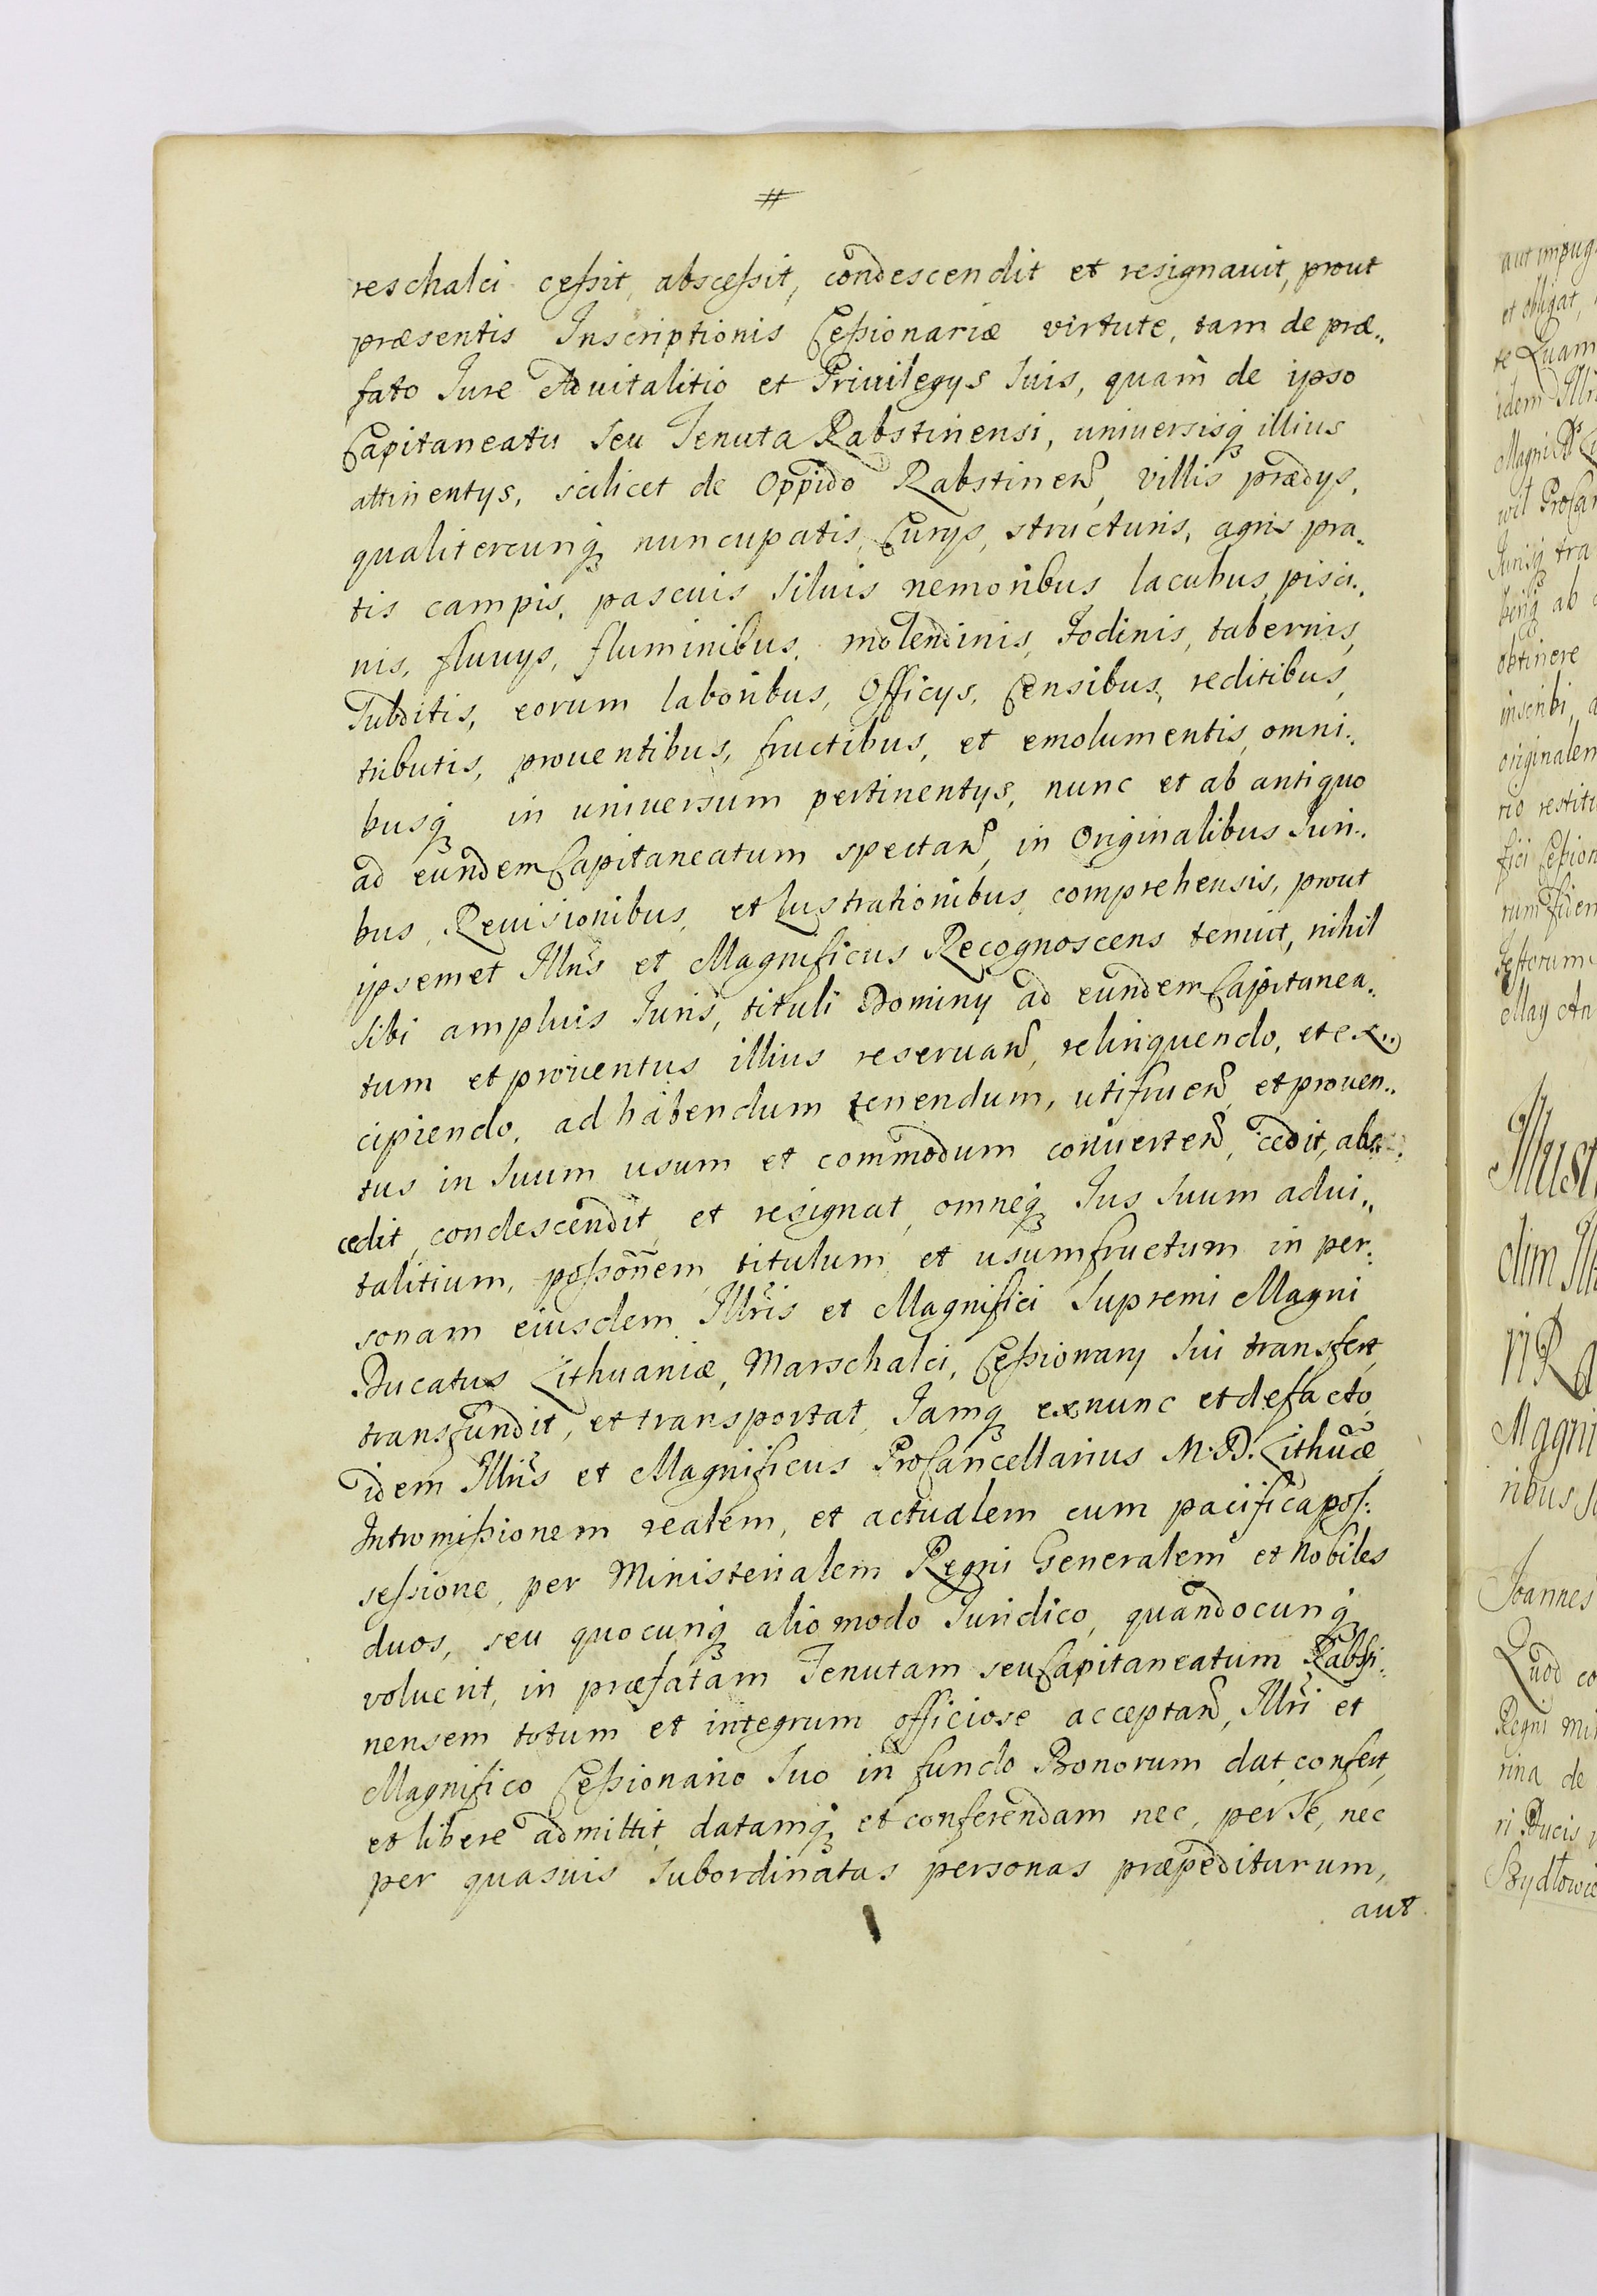 #
reschalci cessit, abscessit, condescendit et resignauit, prout
præsentis Inscriptionis Cessionariæ virtute, tam de præ„
fato Jure Aduitalitio et Priuilegys suis, quam de ipso
Capitaneatu seu Tenuta Rabstinensi, uniuersisq illius
attinentys, scilicet de Oppido Rabstinen, villis prædys,
qualitercunq nuncupatis, Curys, structuris, agris pra„
tis campis, pascuis siluis nemoribus lacubus, pisci„
nis, fluuys, fluminibus, molendinis, fodinis, tabernis,
Subditis, eorum laboribus, Officys, Censibus, reditibus,
tributis, prouentibus, fructibus, et emolumentis, omni„
busq in uniuersum pertinentys, nunc et ab antiquo
ad eundem Capitaneatum spectan, in Originalibus Juri„
bus, Reuisionibus, et Lustrationibus comprehensis, prout
ipsemet Illris et Magnificus Recognoscens tenuit, nihil
sibi amplius Juris, tituli Dominy ad eundem Capitanea„
tum et prouentus illius reseruan, relinquendo, et ex„
cipiendo, ad habendum tenendum, utifruen, et prouen„
tus in suum usum et commodum conuerten, cedit, abs„
cedit, condescendit, et resignat, omneq Jus suum adui„
talitium, possonem, titulum, et usumfructum in per„
sonam eiusdem Illris et Magnifici Supremi Magni
Ducatus Lithuaniæ, Marschalci, Cessionary sui transfert,
transfundit, et transportat, Jamq exnunc et defacto,
idem Illris et Magnificus ProCancellarius M. D. Lithuæ
Intromissionem realem, et actualem cum pacifica pos:
sessione, per Ministerialem Regni Generalem et Nobiles
duos, seu quocunq alio modo Juridico, quandocunq
voluerit, in præfatam Tenutam seu Capitaneatum Rabsti„
nensem totum et integrum officiose acceptan, Illri et
Magnifico Cessionario suo in fundo Bonorum dat, confert,
et libere admittit, datamq et conferendam nec, per se, nec
per quasuis subordinatas personas præpediturum,
aut
aut impug
et obligat,
te Quam
idem Illri
Magni D
uit ProCan
Jurisq tra
ab
obtinere
inscribi, a
originalem
rio restitu
fici Cession
rum fidem
Testorum
May An
Illust
olim Ill
ri R
Magni
ribus
Joannes
Quod co
Regni Mi
rina de
ri Ducis
Szydłowie